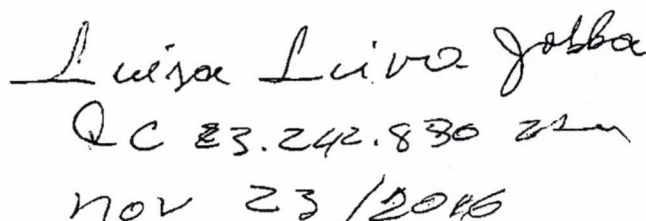 Luisa Leiva Jobba
QC 23.242.830
nov 23/2016